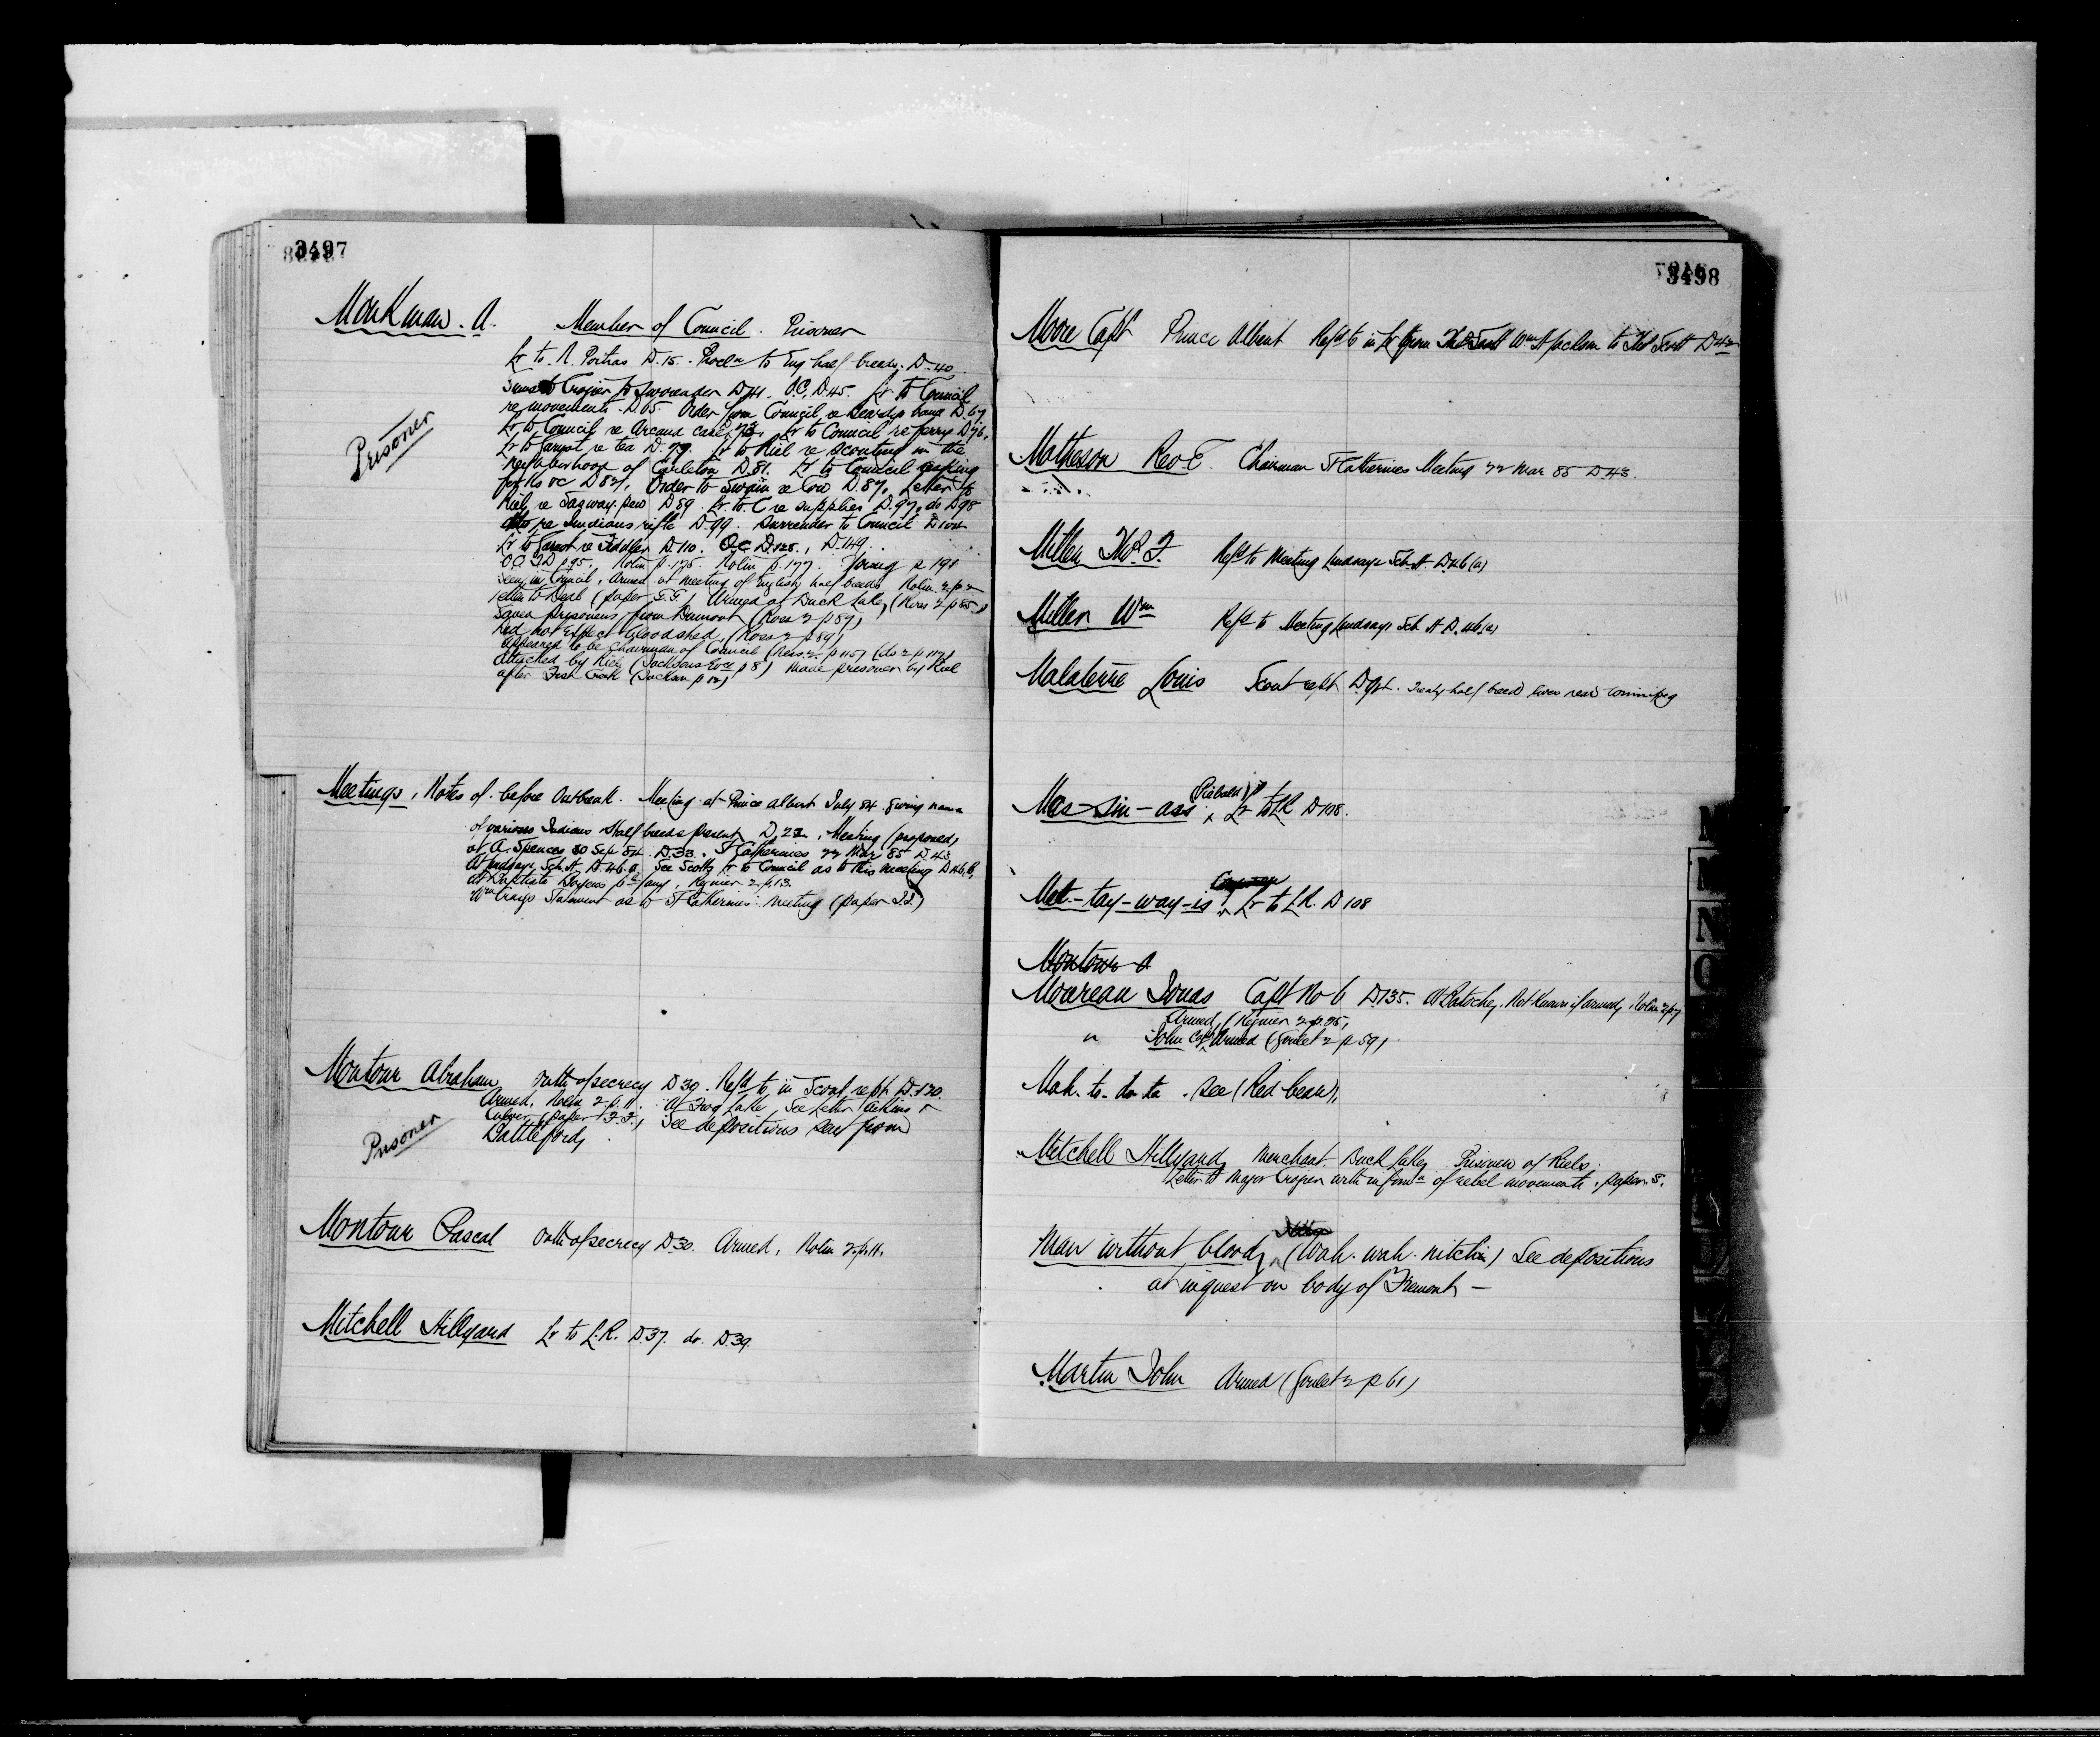 3497
Monkman. A. Member of Council. Prisoner
Lr to. N. Poitras D. 15. Procln to Eng half breeds. D. 40.
to Crozier to Surrender D 41. O.C. D. 45. Lr to Council
re movements. D 65. Order from Council re band D. 67
Lr to Council re Arcand care, 73. Lr to Council re ferry D 76.
Lr to Garnot re tea D. 79. Lr to Riel re scouting in the
neighborhood of Carleton D 81. Lr to Council asking
for his oc D 84. Order to Swain re Cow D. 87. Letter to
Riel re D 89. Lr. to. C re supplies D. 97. do D 98
ditto re Indians rifle D 99. Surrender to Council D 104
Lr to Garnot re Fiddler D. 110. O.C. D. 128., D. 149.
Nolin p. 175. Nolin p. 177. Young p 191
Seen in Council, Armed at meeting of English half breeds Nolin 2. p 2
Letter to Deal (paper G.G.) Armed at Duck Lake, (Ross 2 p 85)
Saved prisoners from Dumont (Ross 2 p 89)
Did not expect bloodshed, (Ross 2 p 89)
Appeared to be Chairman of Council (Ross. 2. p 115) (do 2 p 117)
Attacked by Riel (Jacksons Evce p 8) Made prisoner by Riel
after Fish Creek (Jackson p 12)
Prisoner
Meetings, Notes of. before Outbreak. Meeting at Prince Albert July 84 giving names
of various Indians & half breeds present D. 22. Meeting (proposed)
at A. Spences 10 Sep 84. D. 33. St Catherines 22 Mar 85 D. 43
At Lindsays Sch. H. D. 46. a. See Scotts Lr to Council as to this meeting D 46. b.
at Baptiste Boyers 2. p. 13.
Wm Craigs Statement as to St Catherines meeting (paper I.I.)
Montour Abraham Oath of secrecy D 30. Refd to in Scout rept. D. 130
Armed, Nolin 2 p. 11. At Frog Lake, See Letter
(paper F.F.) See depositions from
Battleford,
Prisoner
Montour Pascal Oath of secrecy D 30. Armed, Nolin 2. p. 11.
Mitchell Hillyard Lr to L.R. D. 37. do. D. 39.
3498
Moore Capt Prince Albert Refd to in Lr from Wm H Jackson to Thos Scott D 42
Matheson Rev E. Chairman St Catherines Meeting 22 Mar 85 D. 43.
Miller Thos F. Refd to Meeting Lindsays Sch. H. D. 46 (a)
Miller Wm Refd to Meeting Lindsays Sch H D. 46 (a)
Malaterre Louis Scout rept D 94. Treaty half breed lives near Winnipeg
Mas-sin-ass (Piebald) Lr to LR D 108.
Met-tay-way-is Lr to LR. D 108
Montour A
Moureau Jonas Capt No 6 D 135. At Batoche, Not known if armed, Nolin 2 p 7
Armed, 2. p. 25,
" John Capt Armed (Goulet 2 p 59)
Mah. to. da ta. see (Red bean),
Mitchell Hillyard, Merchant. Duck Lake, Prisoner of Riels.
Letter to Major Crozier with informn of rebel movements, paper S.
Man without blood, (Wah. wah. nitchi) See depositions
at inquest on body of Fremont —
Martin John Armed (Goulet 2 p 61)